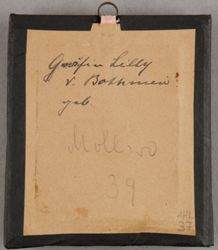 Gräfin Lilly
v. Bothmer
geb.
Mollwo
39
AHL
37